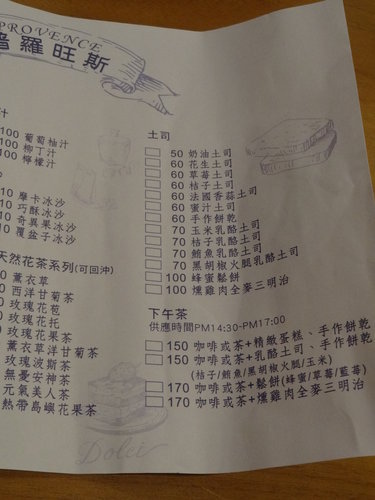 PROVENCE
普羅旺斯
汁
100 葡萄柚汁
100 柳丁汁
100 檸檬汁
10 摩卡冰沙
10 巧酥冰沙
10 奇異果冰沙
10 覆盆子冰沙
天然花茶系列(可回沖)
薰衣草
西洋甘菊茶
玫瑰花苞
玫瑰花托
玫瑰花果茶
薰衣草洋甘菊茶
玫瑰波斯茶
無憂安神茶
元氣美人茶
熱帶島嶼花果茶
土司
50 奶油土司
60 花生土司
60 草莓土司
60 桔子土司
60 法國香蒜土司
60 蜜汁土司
60 手作餅乾
70 玉米乳酪土司
70 桔子乳酪土司
70 鮪魚乳酪土司
70 黑胡椒火腿乳酪土司
100 蜂蜜鬆餅
100 燻雞肉全麥三明治
下午茶
供應時間PM14:30-PM17:00
150 咖啡或茶+精緻蛋糕、手作餅乾
150 咖啡或茶+乳酪土司、手作餅乾
(桔子/鮪魚/黑胡椒火腿/玉米)
170 咖啡或茶+鬆餅(蜂蜜/草莓/藍莓)
170 咖啡或茶+燻雞肉全麥三明治
Dolci